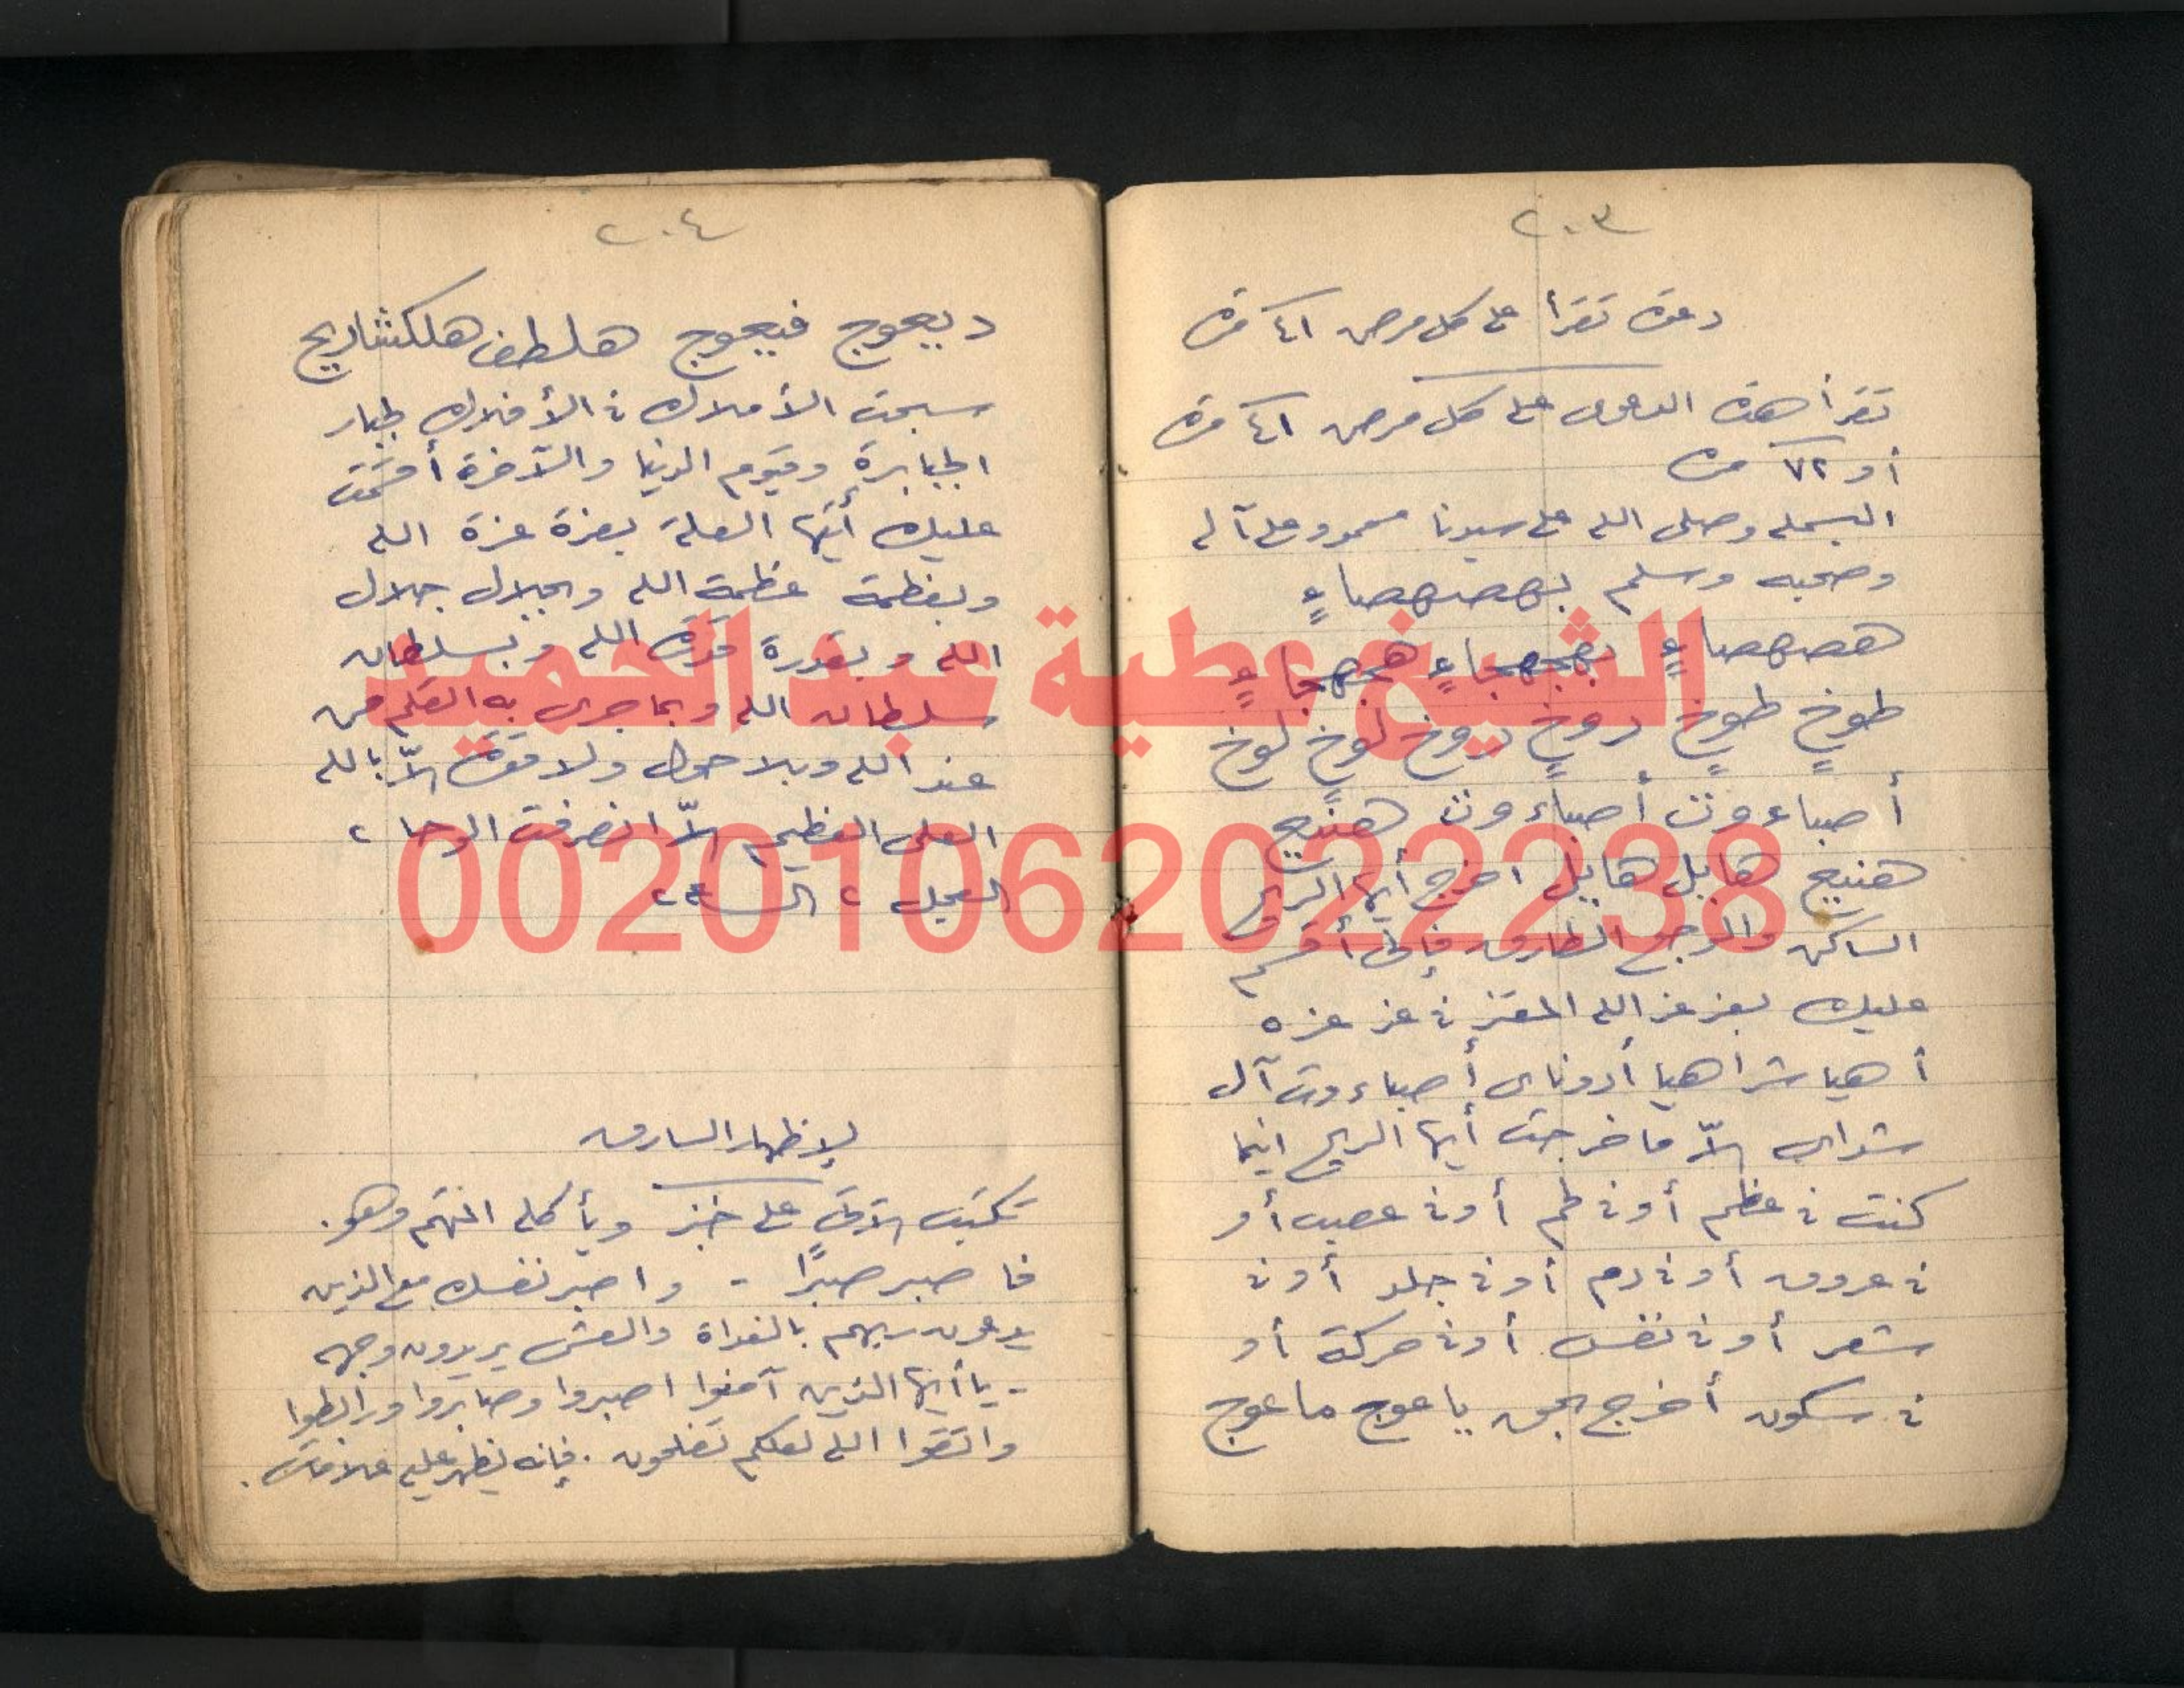 ٢٠٣
دعوة تقرأ على كل مرض ٤١ مرة
تقرأ هذه الدعوى على كل مرض ٤١ مرة
أو ٧٢ مرة
البسملة وصلى الله على سيدنا محمد وعلى آله
وصحبه وسلم بهصهصاءٍ
هصهصاءٍ بهجهجاءٍ هجهجاءٍ
طوخٍ طوخٍ دوخٍ دوخٍ لوخٍ لوخ
أصباءوت أصباءوت هنيج
هنيج هابيل هابيل اخرج أيها الريح
الساكن والوجع الطارق فإنى أقسم
عليك بعز عز الله المعتز فى عز عزه
أهيا شراهيا أدوناى أصباءوت آل
شداى إلاّ ما خرجت أيها الريح اينما
كنت فى عظم أو فى لحم أو فى عصب أو
فى عروق أو فى دم أو فى جلد أو فى
شعر أو فى نفس أو فى حركة أو
فى سكون أخرج بحق ياعوج ماعوج
٢٠٤
ديعوج فيعوج هلطف هلكشاريج
سبحت الأملاك فى الأفلاك لجبار
الجبابرة وقيوم الدنيا والآخرة أقسمت
عليك أيتها العلة بعزة عزة الله
وبعظمة عظمة الله وبجلال جلال
الله وبقدرة قدرة الله وبسلطان
سلطان الله وبما جرى به القلم من
عند الله وبلا حول ولا قوة إلاّ بالله
العلى العظيم إلاّ انصرفت الوحا ٢
العجل ٢ الساعة ٢
لإظهار السارق
تكتب الآتى على خبز ويأكله المتهم وهو.
فاصبر صبرًا - واصبر نفسك مع الذين
يدعون ربهم بالغداة والعشى يريدون وجهه
- يا أيها الذين آمنوا اصبروا وصابروا ورابطوا
واتقوا الله لعلكم تفلحون. فإنه يظهر عليه علامات.
الشيخ عطية عبد الحميد
00201062022238